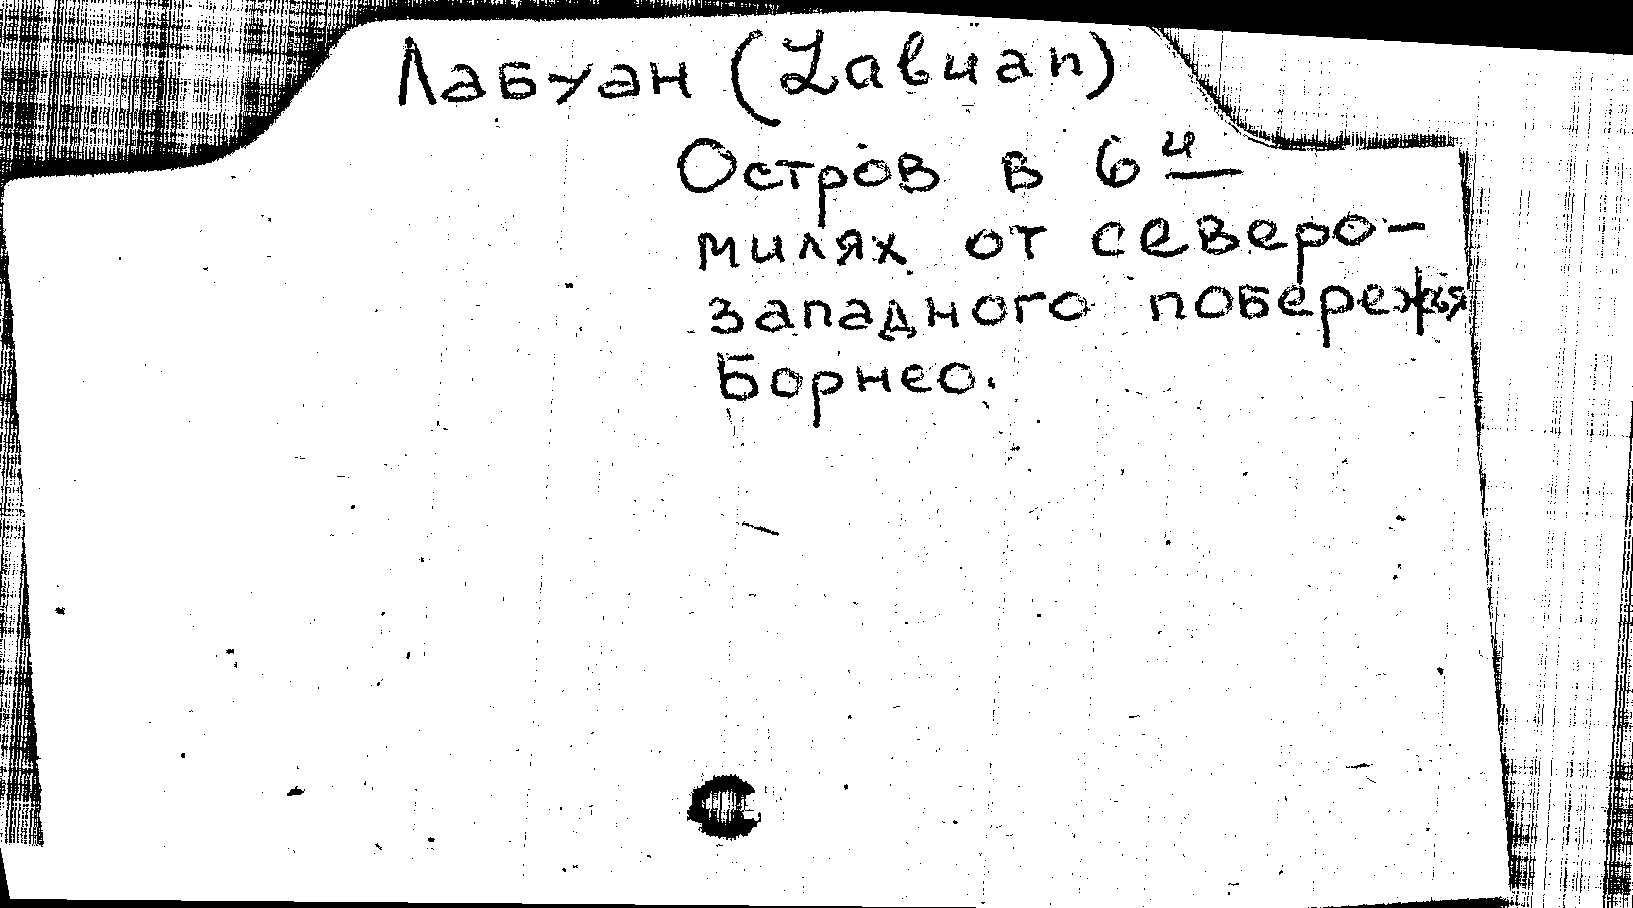 Лабуан (Labuan)
Остров в 6и
милях от северо-
западного побережья
Борнео.